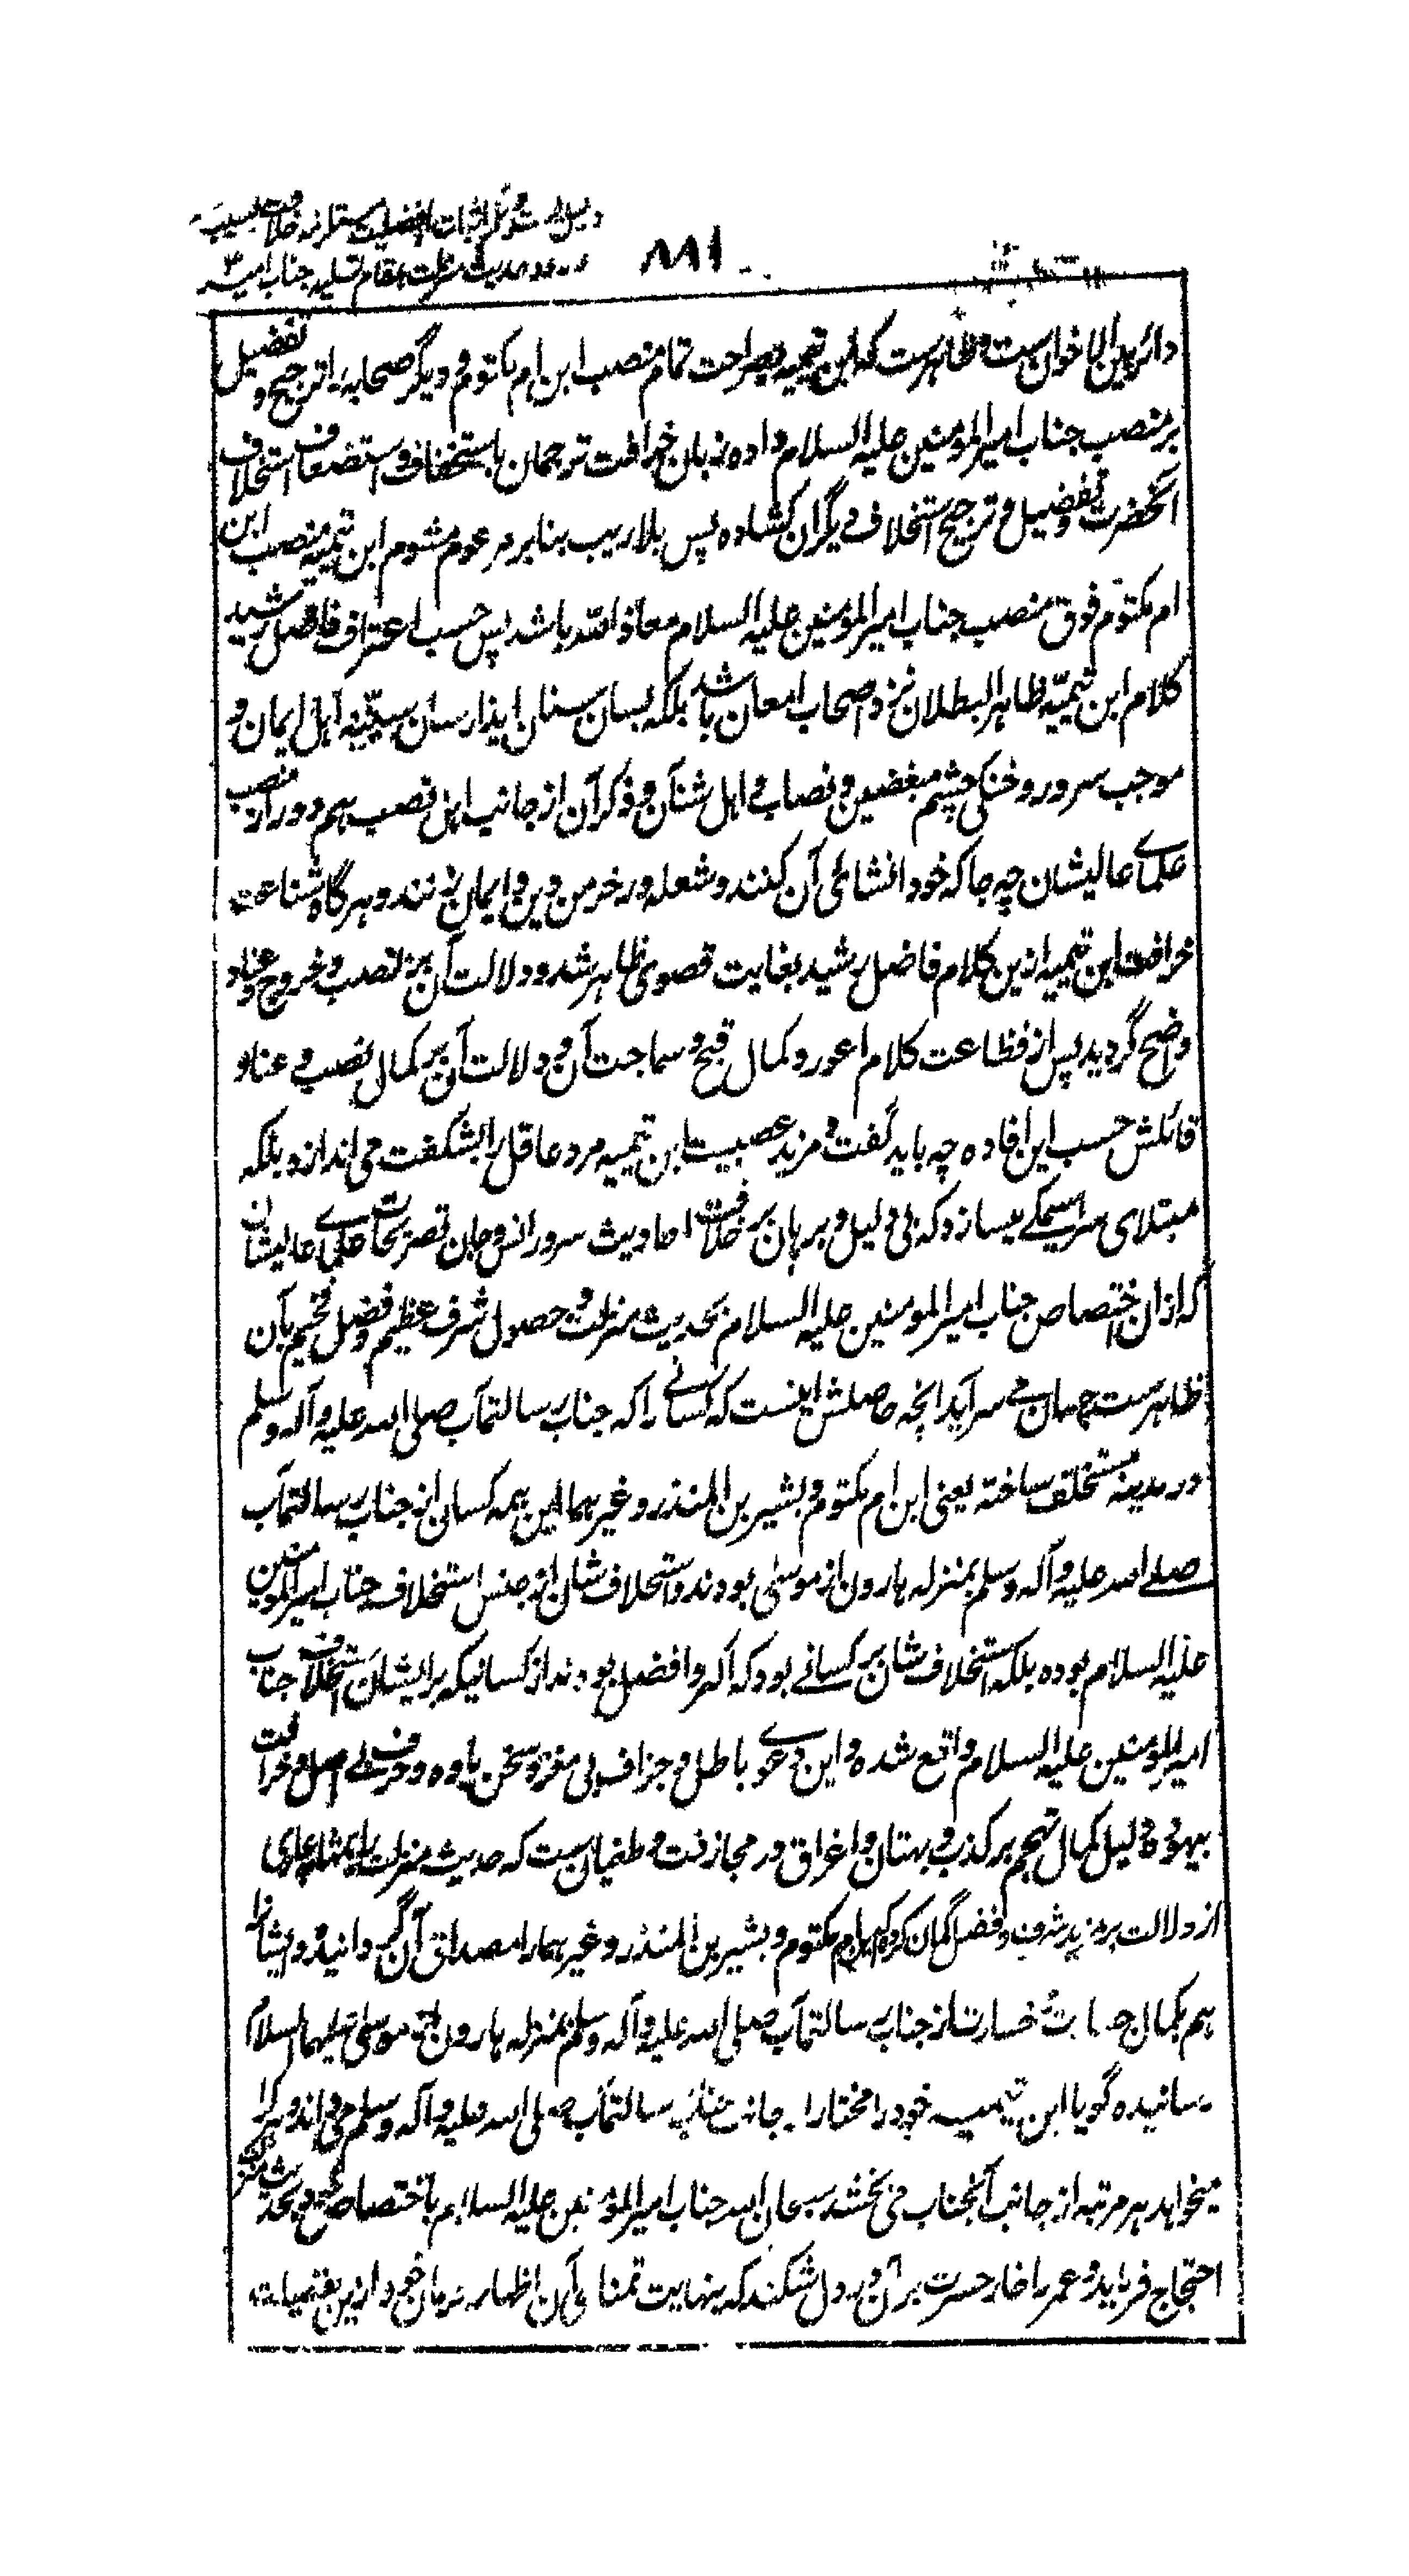 ۸۸۱
دائر بین الاخوان ست و ظاهرست که ابن تیمیه بصراحت تمام منصب ابن ام مکتوم و دیگر صحابه را ترجیح و تفضیل
بر منصب جناب امیرالمؤمنین علیه السلام داده زبان خرافت ترجمان باستخفاف و استضعاف استخلاف
آنحضرت و تفضیل و ترجیح استخلاف دیگران کشاده پس بلا ریب بنابر مزعوم مشوم ابن تیمیه منصب ابن
ام مکتوم فوق منصب جناب امیرالمؤمنین علیه السلام معاذ الله باشد پس حسب اعتراف فاضل رشید
کلام ابن تیمیه ظاهر البطلان نزد اصحاب امعان باشد بلکه بسان سنان ایذا رسان بسینه اهل ایمان و
موجب سرور و خنکی چشم مبغضین و نصاب و اهل شنآن و ذکر آن از جانب اهل نصب هم دور از منصب
علمای عالیشان چه جا که خود انشائی آن کنند و شعله در خرمن دین و ایمان زنند و هر گاه شناعت
خرافت ابن تیمیه ازین کلام فاضل رشید بغایت قصوی ظاهر شد و دلالت آن بر نصب و خروج و عناد
واضح گردید پس از فظاعت کلام اعور و کمال قبح و سماجت آن و دلالت آن بر کمال نصب و عناد
قائلش حسب این افاده چه باید گفت و مزید عصبیت ابن تیمیه مرد عاقل را بشگفت می اندازد بلکه
مبتلای سراسیمگی میسازد که بی دلیل و برهان بر خلاف احادیث سرور انس و جان و تصریحات علمای عالیشان
که ازان اختصاص جناب امیرالمومنین علیه السلام بحدیث منزلت و حصول شرف عظیم و فضل فخیم بآن
ظاهرست چسان می سراید آنچه حاصلش اینست که کسانی را که جناب رسالتمآب صلی الله علیه و آله و سلم
در مدینه مستخلف ساخته یعنی ابن ام مکتوم و بشیر بن المنذر و غیرهما این همه کسان از جناب رسالتمآب
صلی الله علیه و آله وسلم بمنزله هارون از موسی بودند و استخلاف شان از جنس استخلاف جناب امیرالمومنین
علیه السلام بوده بلکه استخلاف شان بر کسانی بود که اکثر و افضل بودند از کسانیکه بر ایشان استخلاف جناب
امیرالمومنین علیه السلام واقع شده و این دعوی باطل و جزاف بی مغز و سخن یاوه و حرف بی اصل و خرافت
بیهوده و دلیل کمال تهجم بر کذب و بهتان و اغراق در مجازفت و طغیان ست که حدیث منزلت را
از دلالت بر مزید شرف و فضل گمان کرده که ابن ام مکتوم و بشیر بن المنذر و غیرهما را مصداق آن گردانیده و ایشان را
هم بکمال خسارت از جناب رسالتمآب صلی الله علیه و آله وسلم بمنزله هارون از موسی علیهما السلام
رسانیده گویا ابن تیمیه خود را مختار از جانب جناب رسالتمآب صلی الله علیه و آله وسلم می داند هر کرا
میخواهد هر مرتبه از جانب آنجناب می بخشد سبحان الله جناب امیرالمؤمنین علیه السلام باختصاص خود بحدیث منزلت
احتجاج فرماید و عمر را خار حسرت بران در دل شکند که بنهایت تمنای آن اظهار حرمان خود ازین